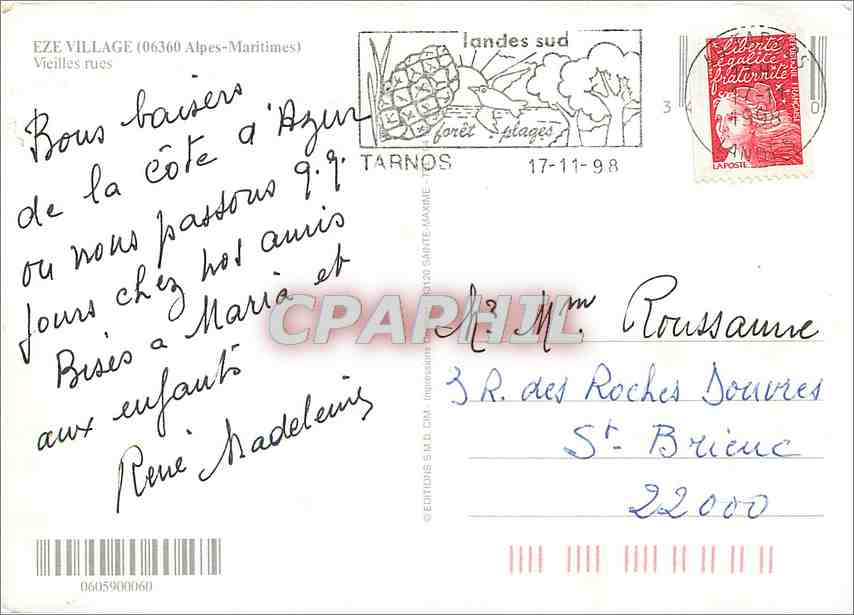 EZE VILLAGE (06360 Alpes-Maritimes)
Vieilles rues
Bons baisers
de la Côte d'Azur
ou nous passons q.q.
jours chez nos amis
Bises a Maria et
aux enfants
René Madeleine
0605900060
landes sud
forêt plages
TARNOS 17-11-98
liberté
égalité
fraternité
LA POSTE
17-11
1998
CPAPHIL
© EDITIONS S.M.D. CIM - Impressions
83120 SAINTE-MAXIME
Mr Mme Roussanne
3 R. des Roches Douvres
St-Brieuc
22000